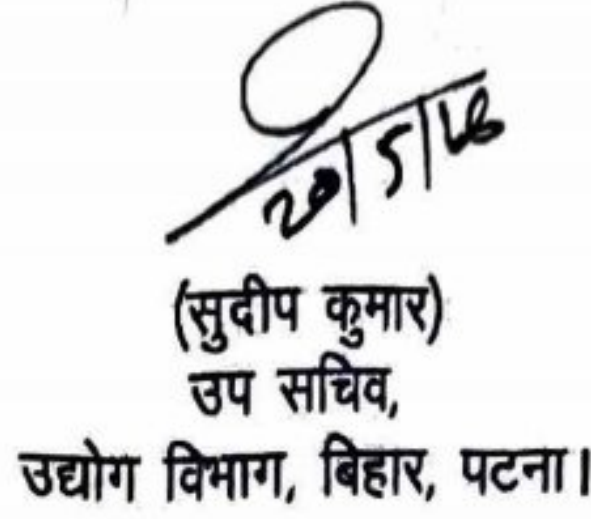 20/5/16
(सुदीप कुमार)
उप सचिव,
उद्योग विभाग, बिहार, पटना।